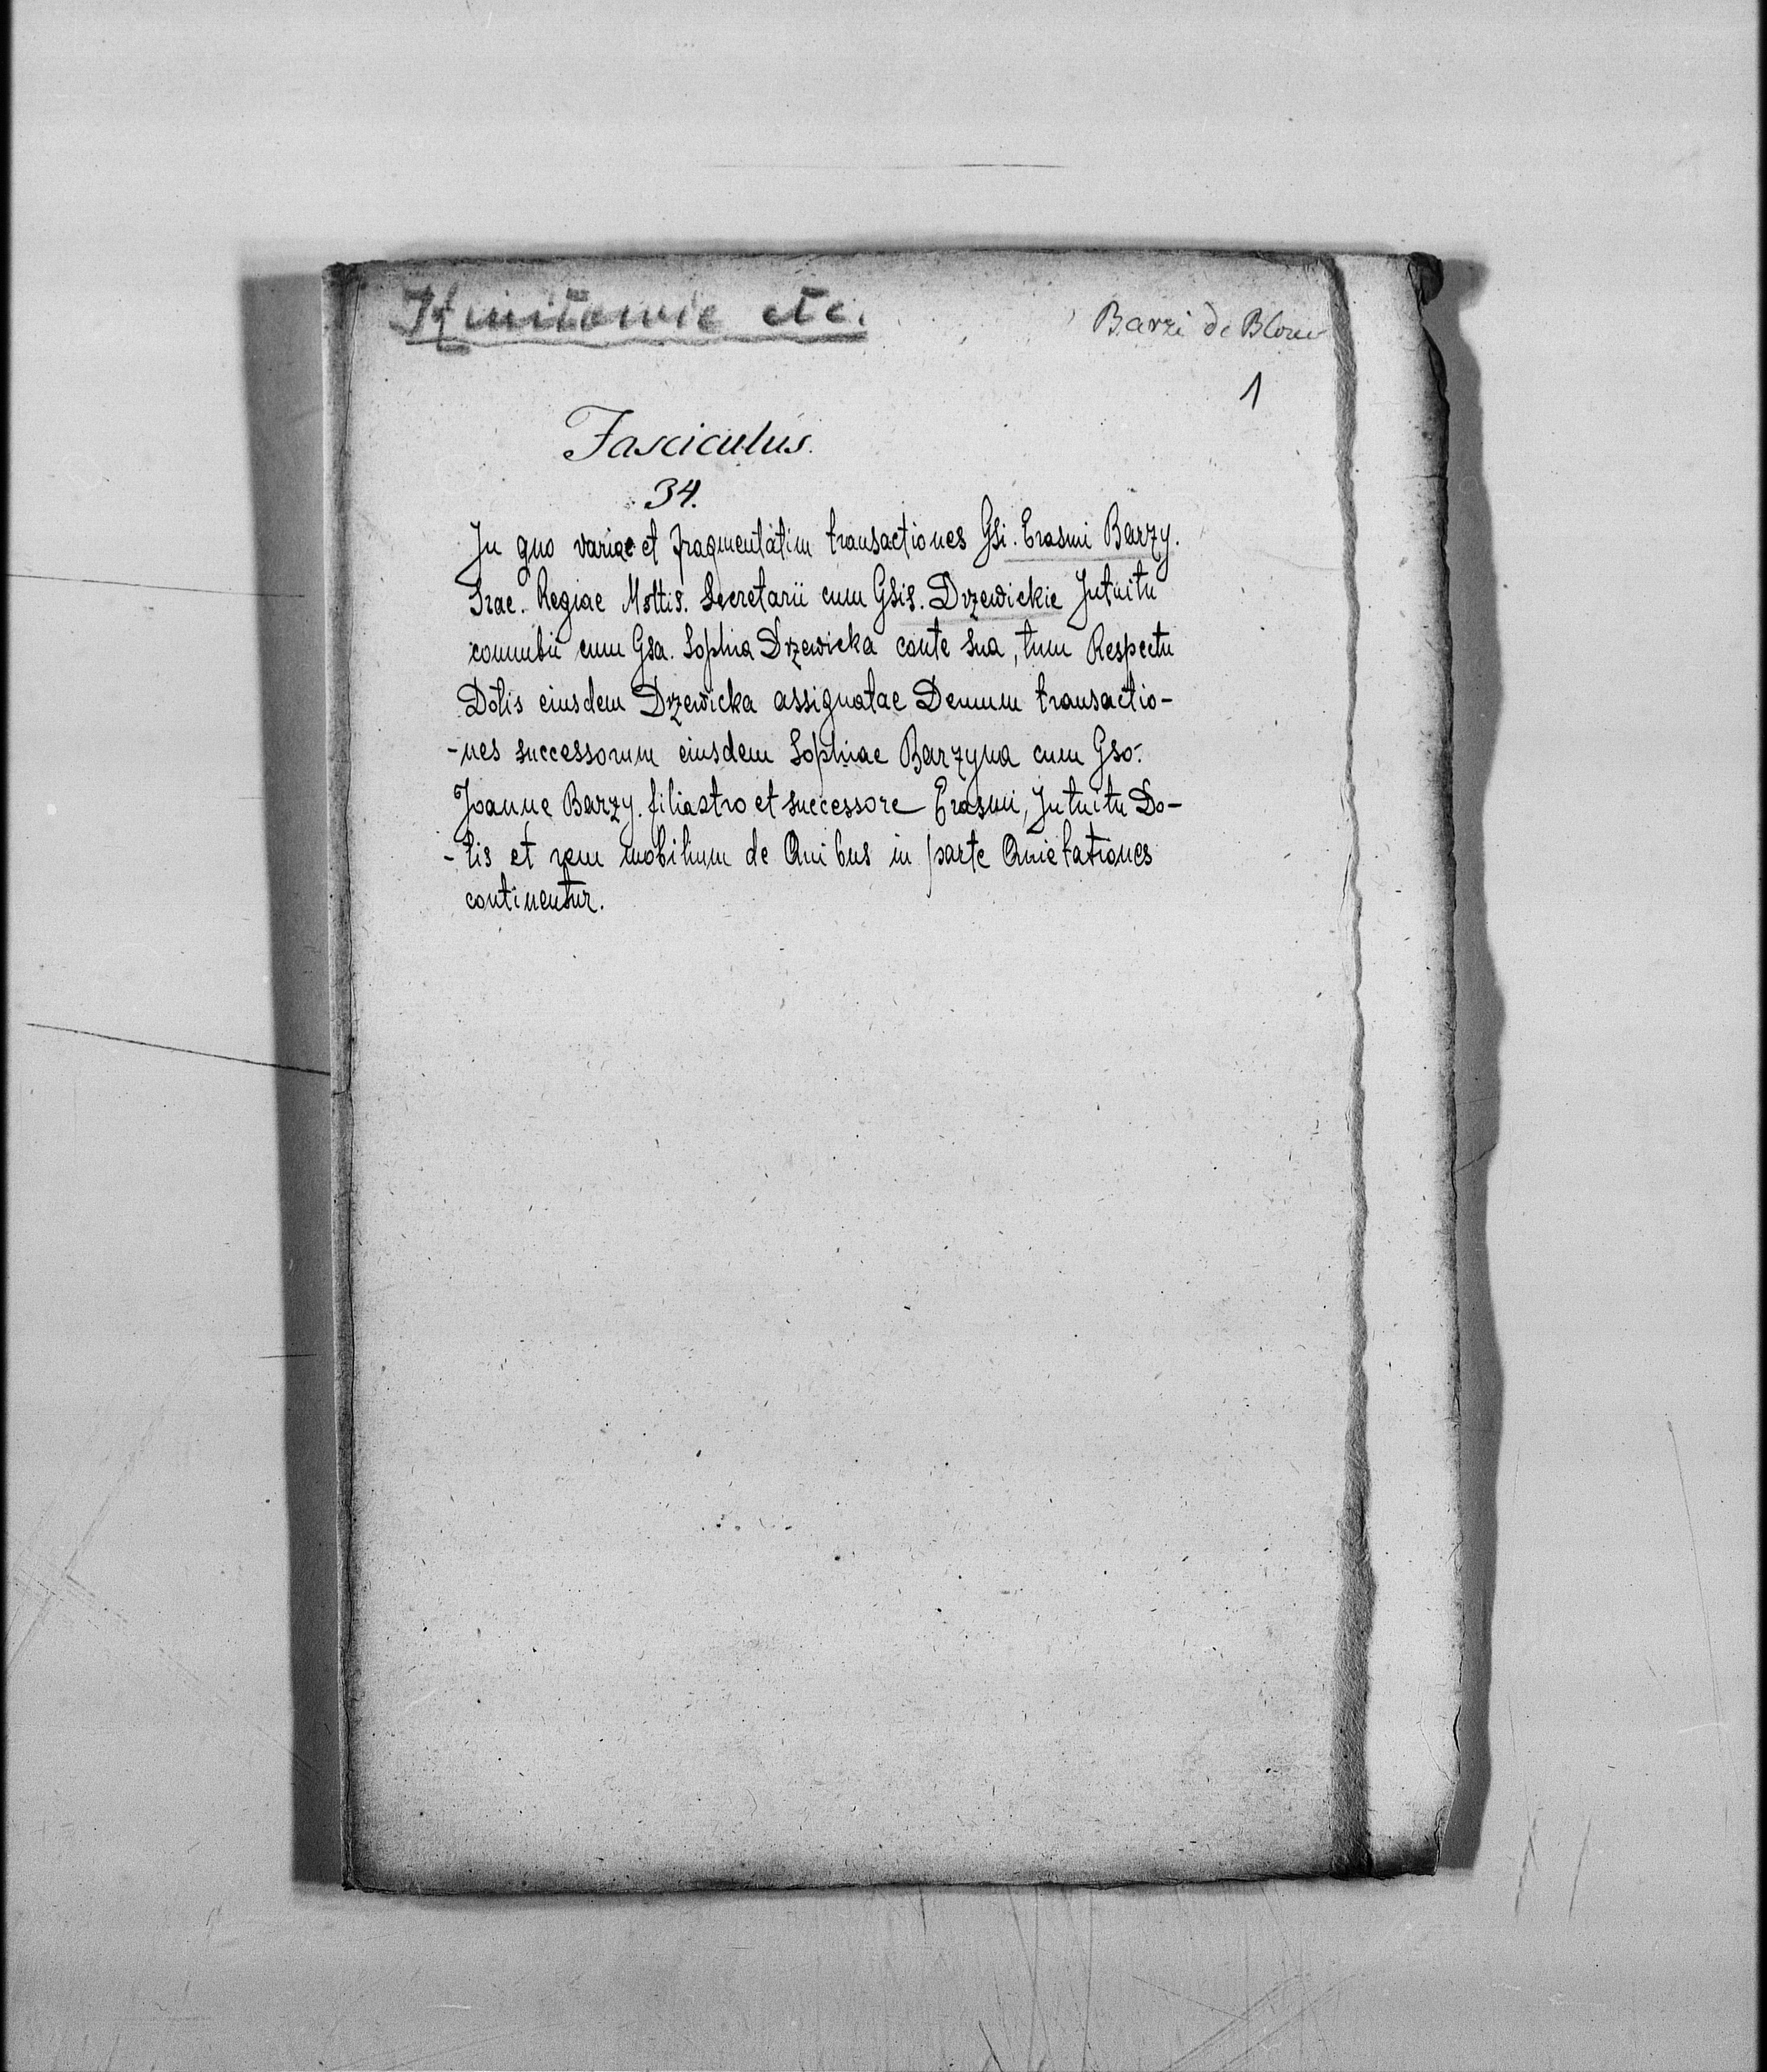 Kmitowie etc.
Barzi de Blozew
1
Fasciculus.
34.
In quo variae et fragmentatim transactiones Gsi. Erasmi Barzy.
Srae. Regiae Mttis. Secretarii cum Gsis. Drzewickie Intuitu
connubii cum Gsa. Sophia Drzewicka conte sua, tum Respectu
Dotis eiusdem Drzewicka assignatae Demum transactio-
-nes successorum eiusdem Sophiae Barzyna cum Gso.
Joanne Barzy. filiastro et successore Erasmi, Intuitu Do-
-tis et rem mobilium de Quibus in parte Quietationes
continentur.